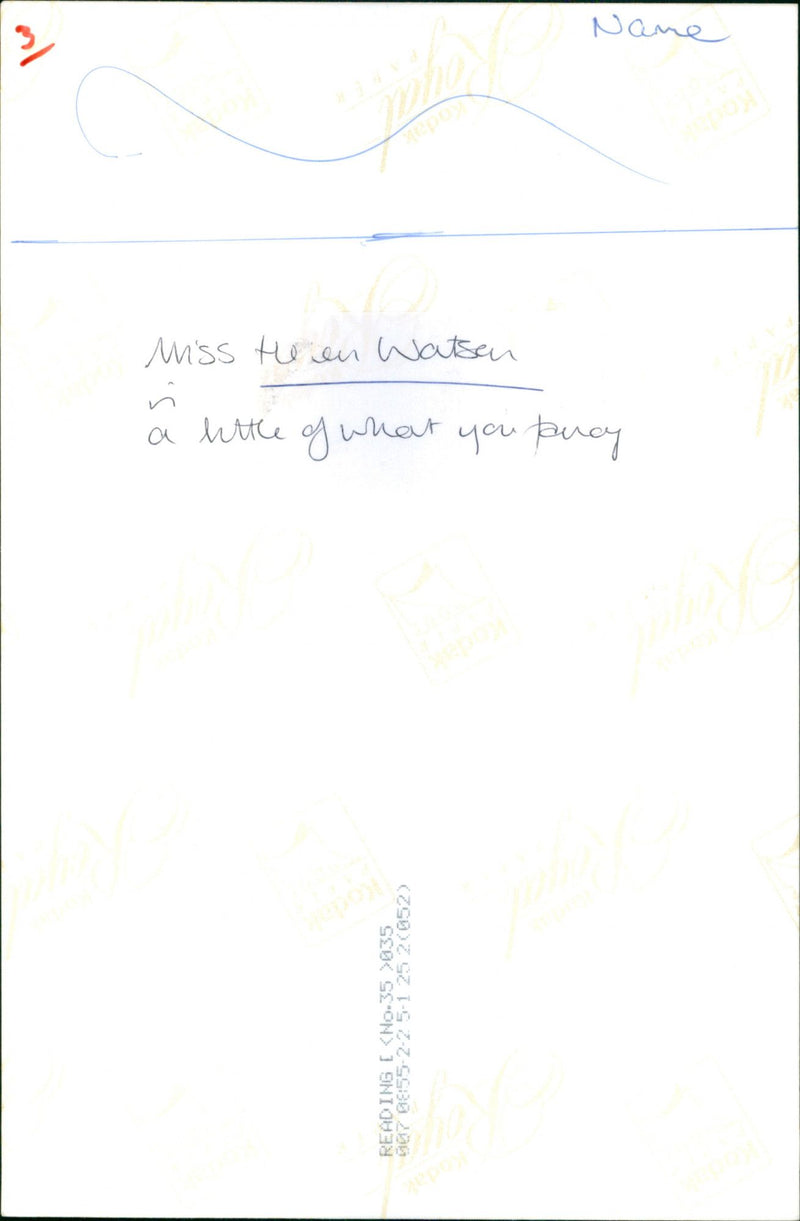 3
Name
Miss Helen Watson
in
a little of what you fancy
READING [ <No.35 >035
007 0055-2-2 5-1 25 2(052)
Kodak
Royal
PAPER